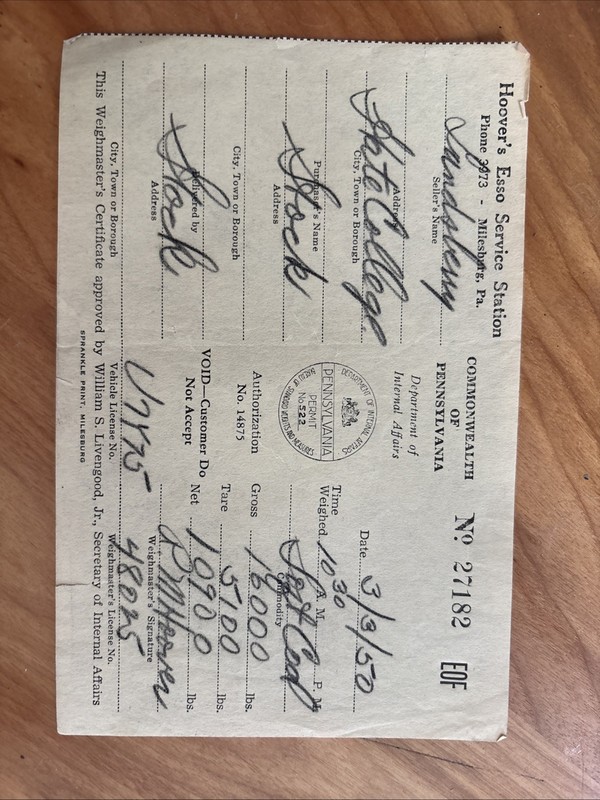 Hoover's Esso Service Station
Phone 3973 - Milesburg, Pa.
Seller's Name
State College
Address
City, Town or Borough
Stock
Purchaser's Name
Address
City, Town or Borough
Stock
Delivered by
Address
City, Town or Borough
COMMONWEALTH
OF
PENNSYLVANIA
Department of
Internal Affairs
DEPARTMENT OF INTERNAL AFFAIRS
PENNSYLVANIA
PERMIT
No. 522
Authorization
No. 14875
VOID—Customer Do
Not Accept
Vehicle License No.
Nº 27182 EOF
Date 3/3/50
Time
Weighed 10 30 A. M. P. M.
Commodity
Gross 16000 lbs.
Tare 5100 lbs.
Net 10900 lbs.
Hoover
Weighmaster's Signature
48025
Weighmaster's License No.
This Weighmaster's Certificate approved by William S. Livengood, Jr., Secretary of Internal Affairs
SPRANKLE PRINT, MILESBURG